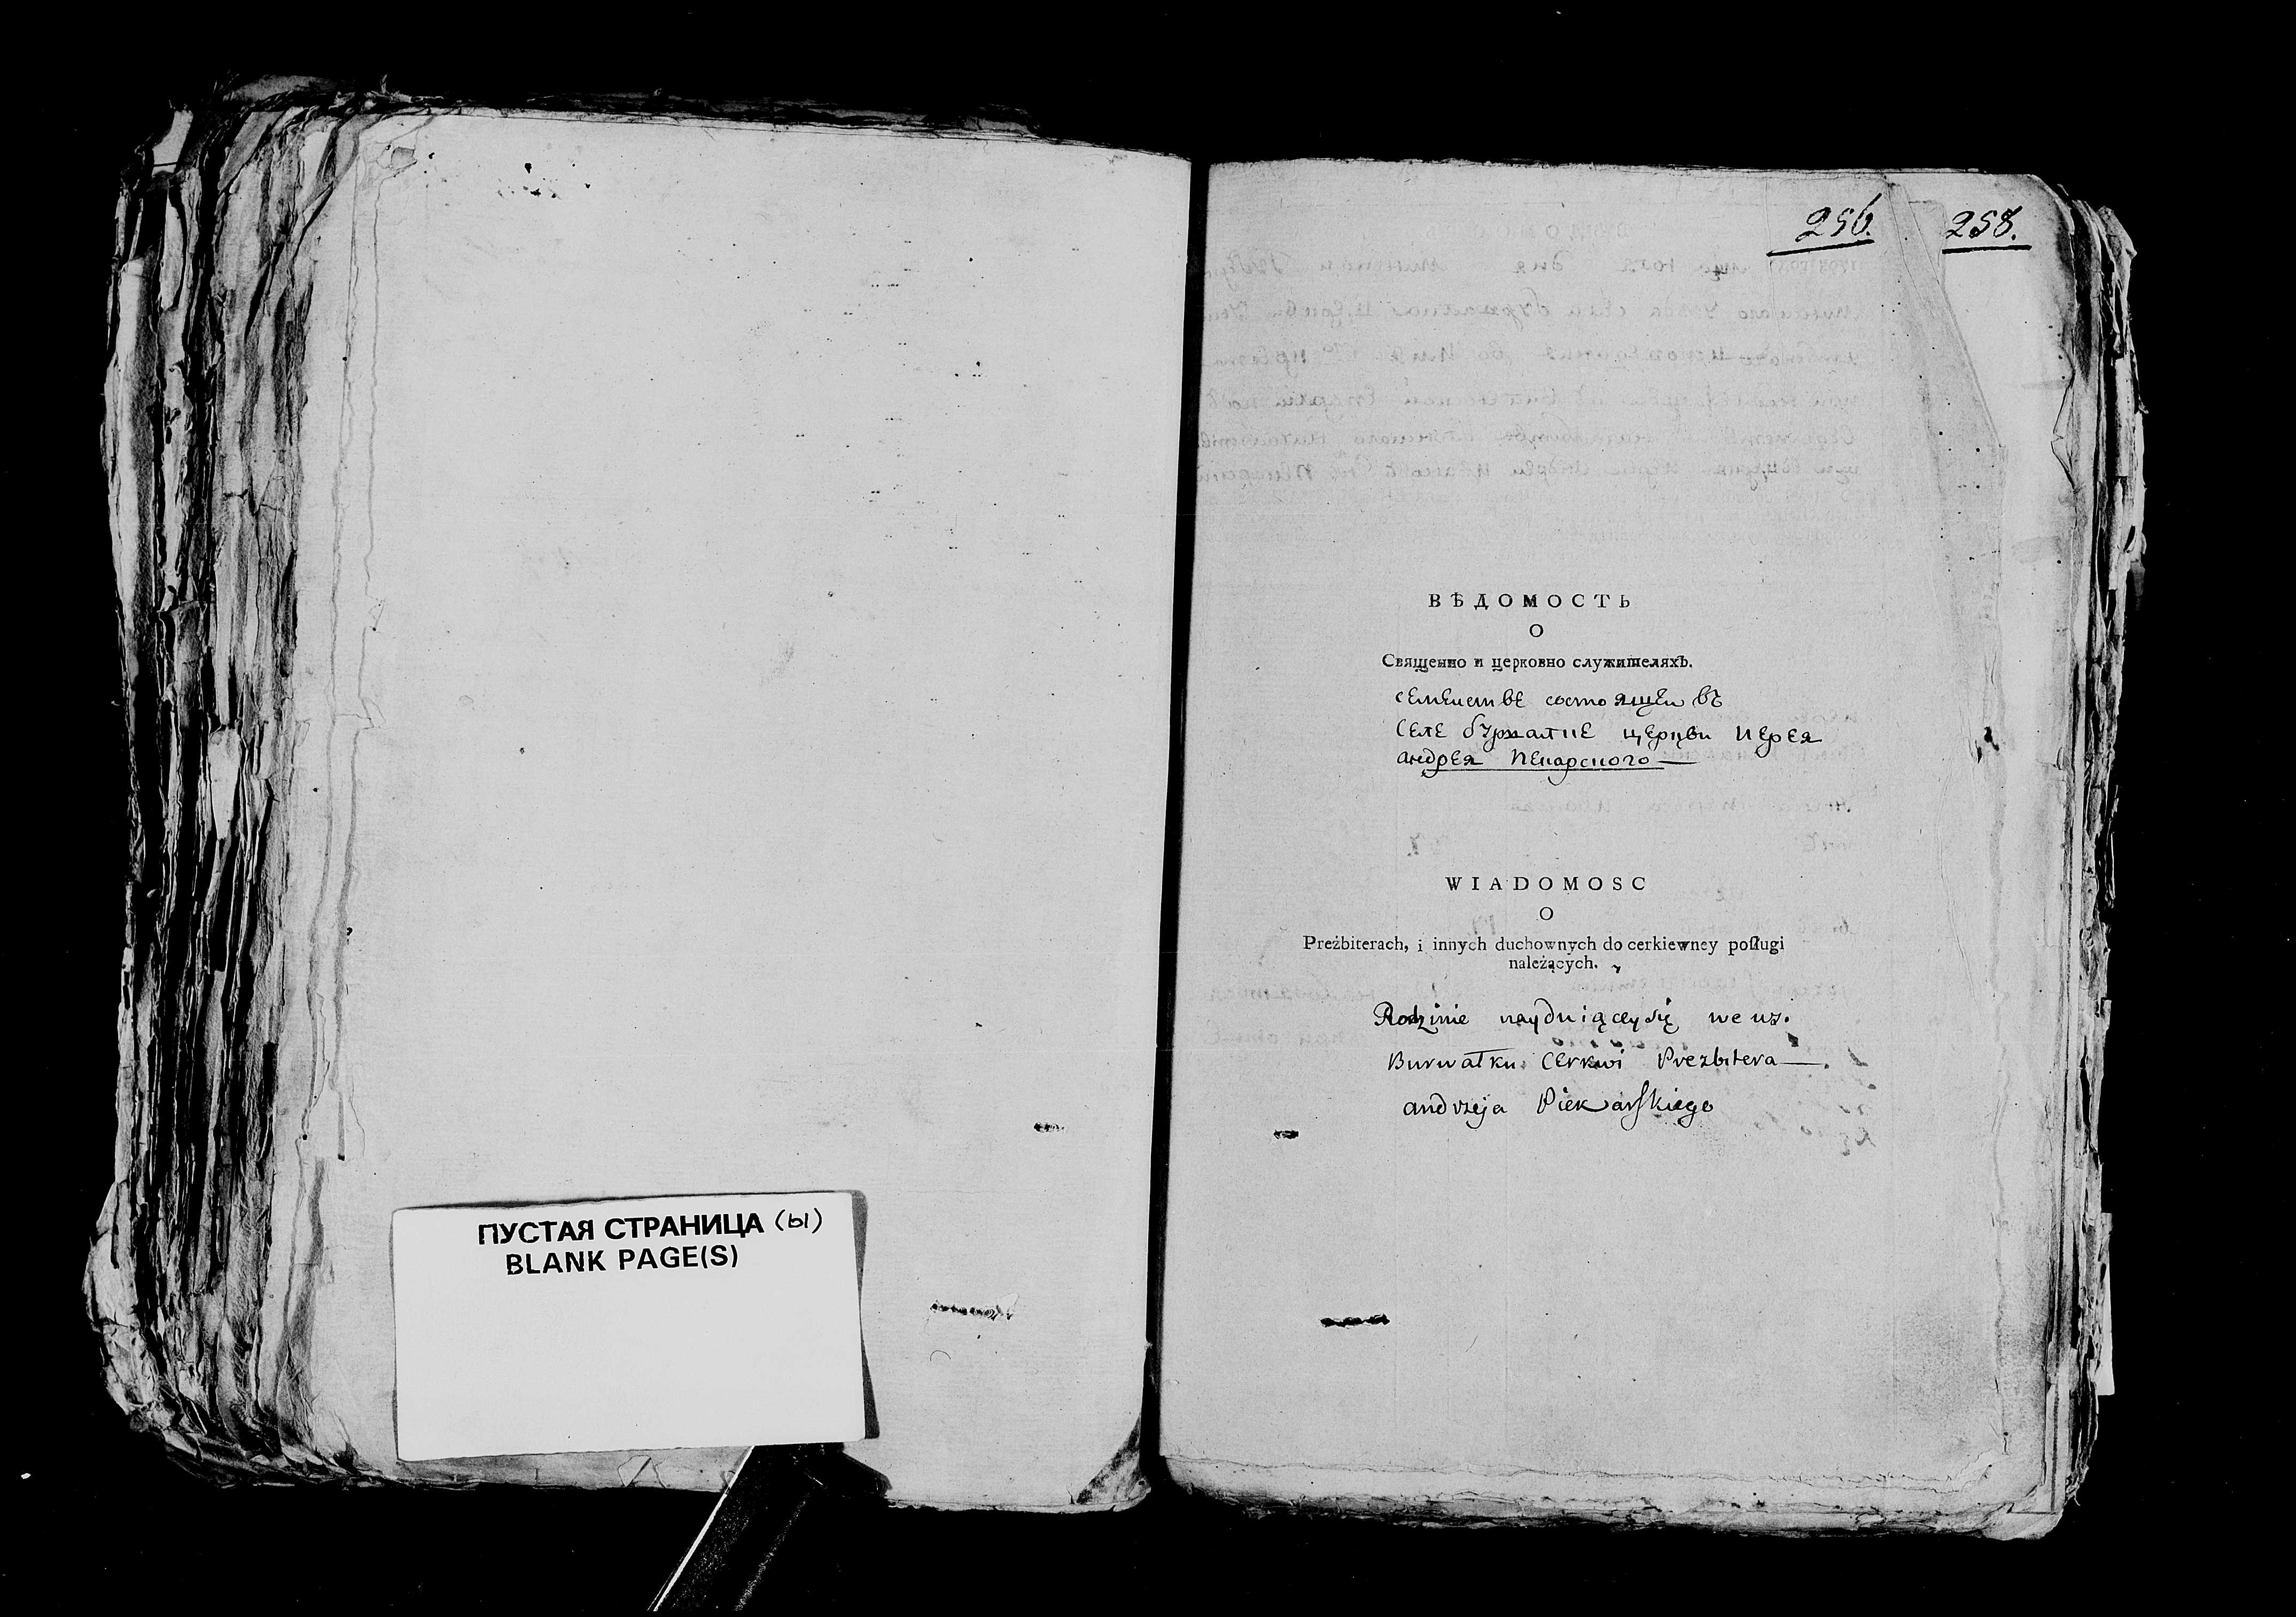 ПУСТАЯ СТРАНИЦА (ы)
BLANK PAGE(S)
256. 258.
ВѢДОМОСТЬ
О
Священно и церковно служителяхъ.
семеистве состоящеи въ
селе бурталце церкви иерея
андрея пекарского —
WIADOMOSC
O
Preźbiterach, i innych duchownych do cerkiewney posługi
należących.
Rodzinie naydniącey się we ws.
Burwałku Cerkwi Prezbitera —.
andrzeja Piekarskiego